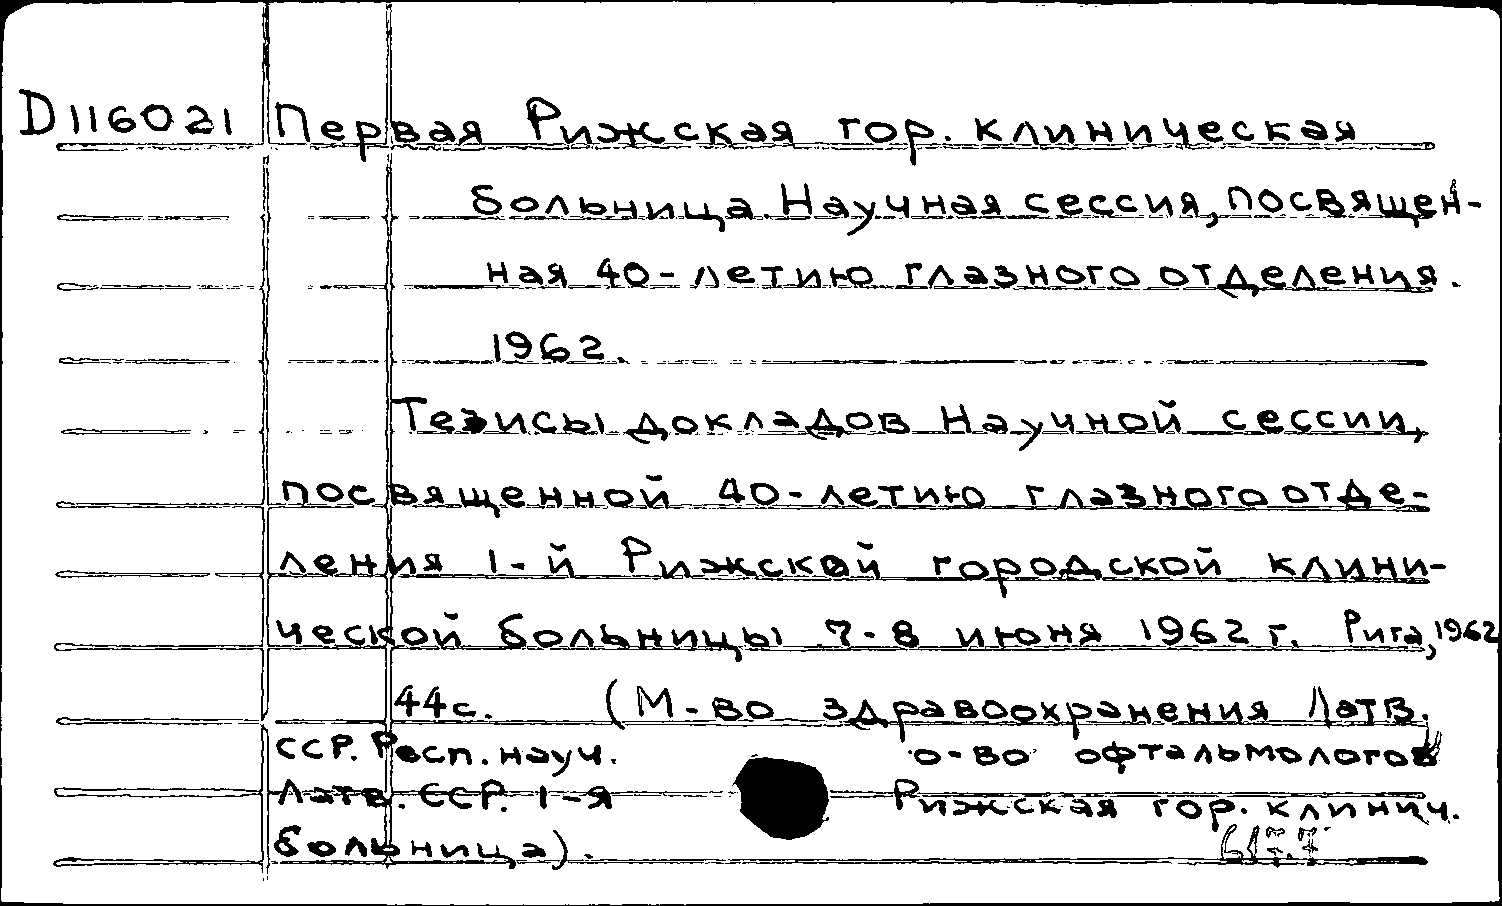 D116021 Первая Рижская гор. клиническая
больница. Научная сессия, посвящен-
ная 40-летию глазного отделения.
1962.
Тезисы докладов Научной сессии,
посвященной 40-летию глазного отде-
ления 1-й Рижской городской клини-
ческой больницы 7-8 июня 1962 г. Рига, 1962
44 с. (М-во здравоохранения Латв.
ССР. Респ. науч. о-во офтальмологов
Латв. ССР. 1-я Рижская гор. клинич.
больница).